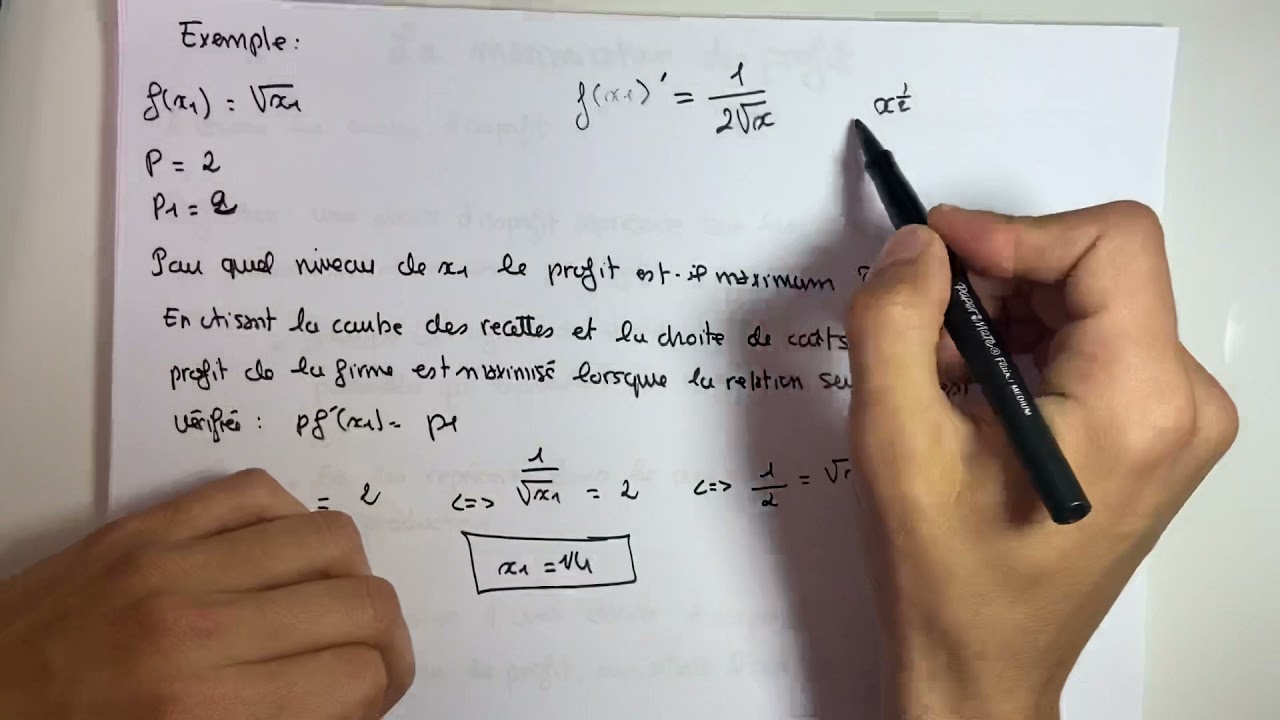 Exemple:
f(x1) = √x1
f(x1)' = 1/2√x
x^1/2
P = 2
P1 = 2
Pour quel niveau de x1 le profit est-il maximum ?
En utisant la courbe des recettes et la droite de coûts
profit de la firme est maximisé lorsque la relation
vérifiée : pf'(x1) = p1
= 2 <=> 1/√x1 = 2 <=> 1/2 = √
x1 = 1/4
PaperMate® FLAIR / MEDIUM